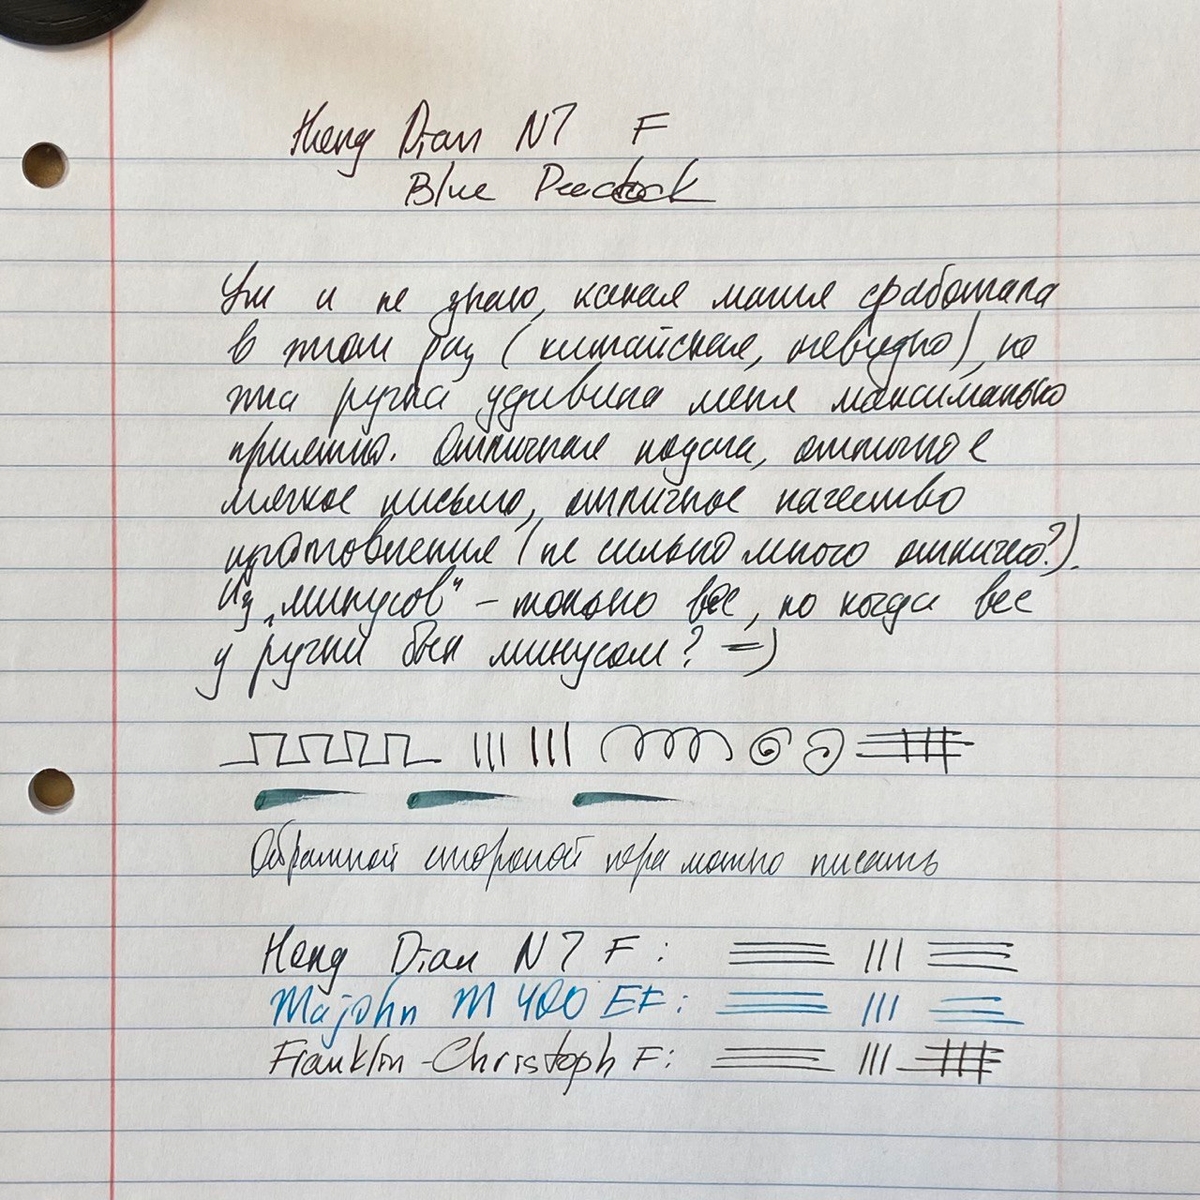 Heng Dian N7 F
Blue Peacock
Уж и не знаю, какая магия сработала
в этом раз (китайская, очевидно), но
эта ручка удивила меня максимально
приятно. Отличная подача, отличное
мягкое письмо, отличное качество
изготовления (не сильно много отлично?).
Из „минусов“ - только вес, но когда вес
у ручки был минусом? =)
Обратной стороной пера можно писать
Heng Dian N7 F:
Majohn M400 EF:
Franklin-Christoph F: